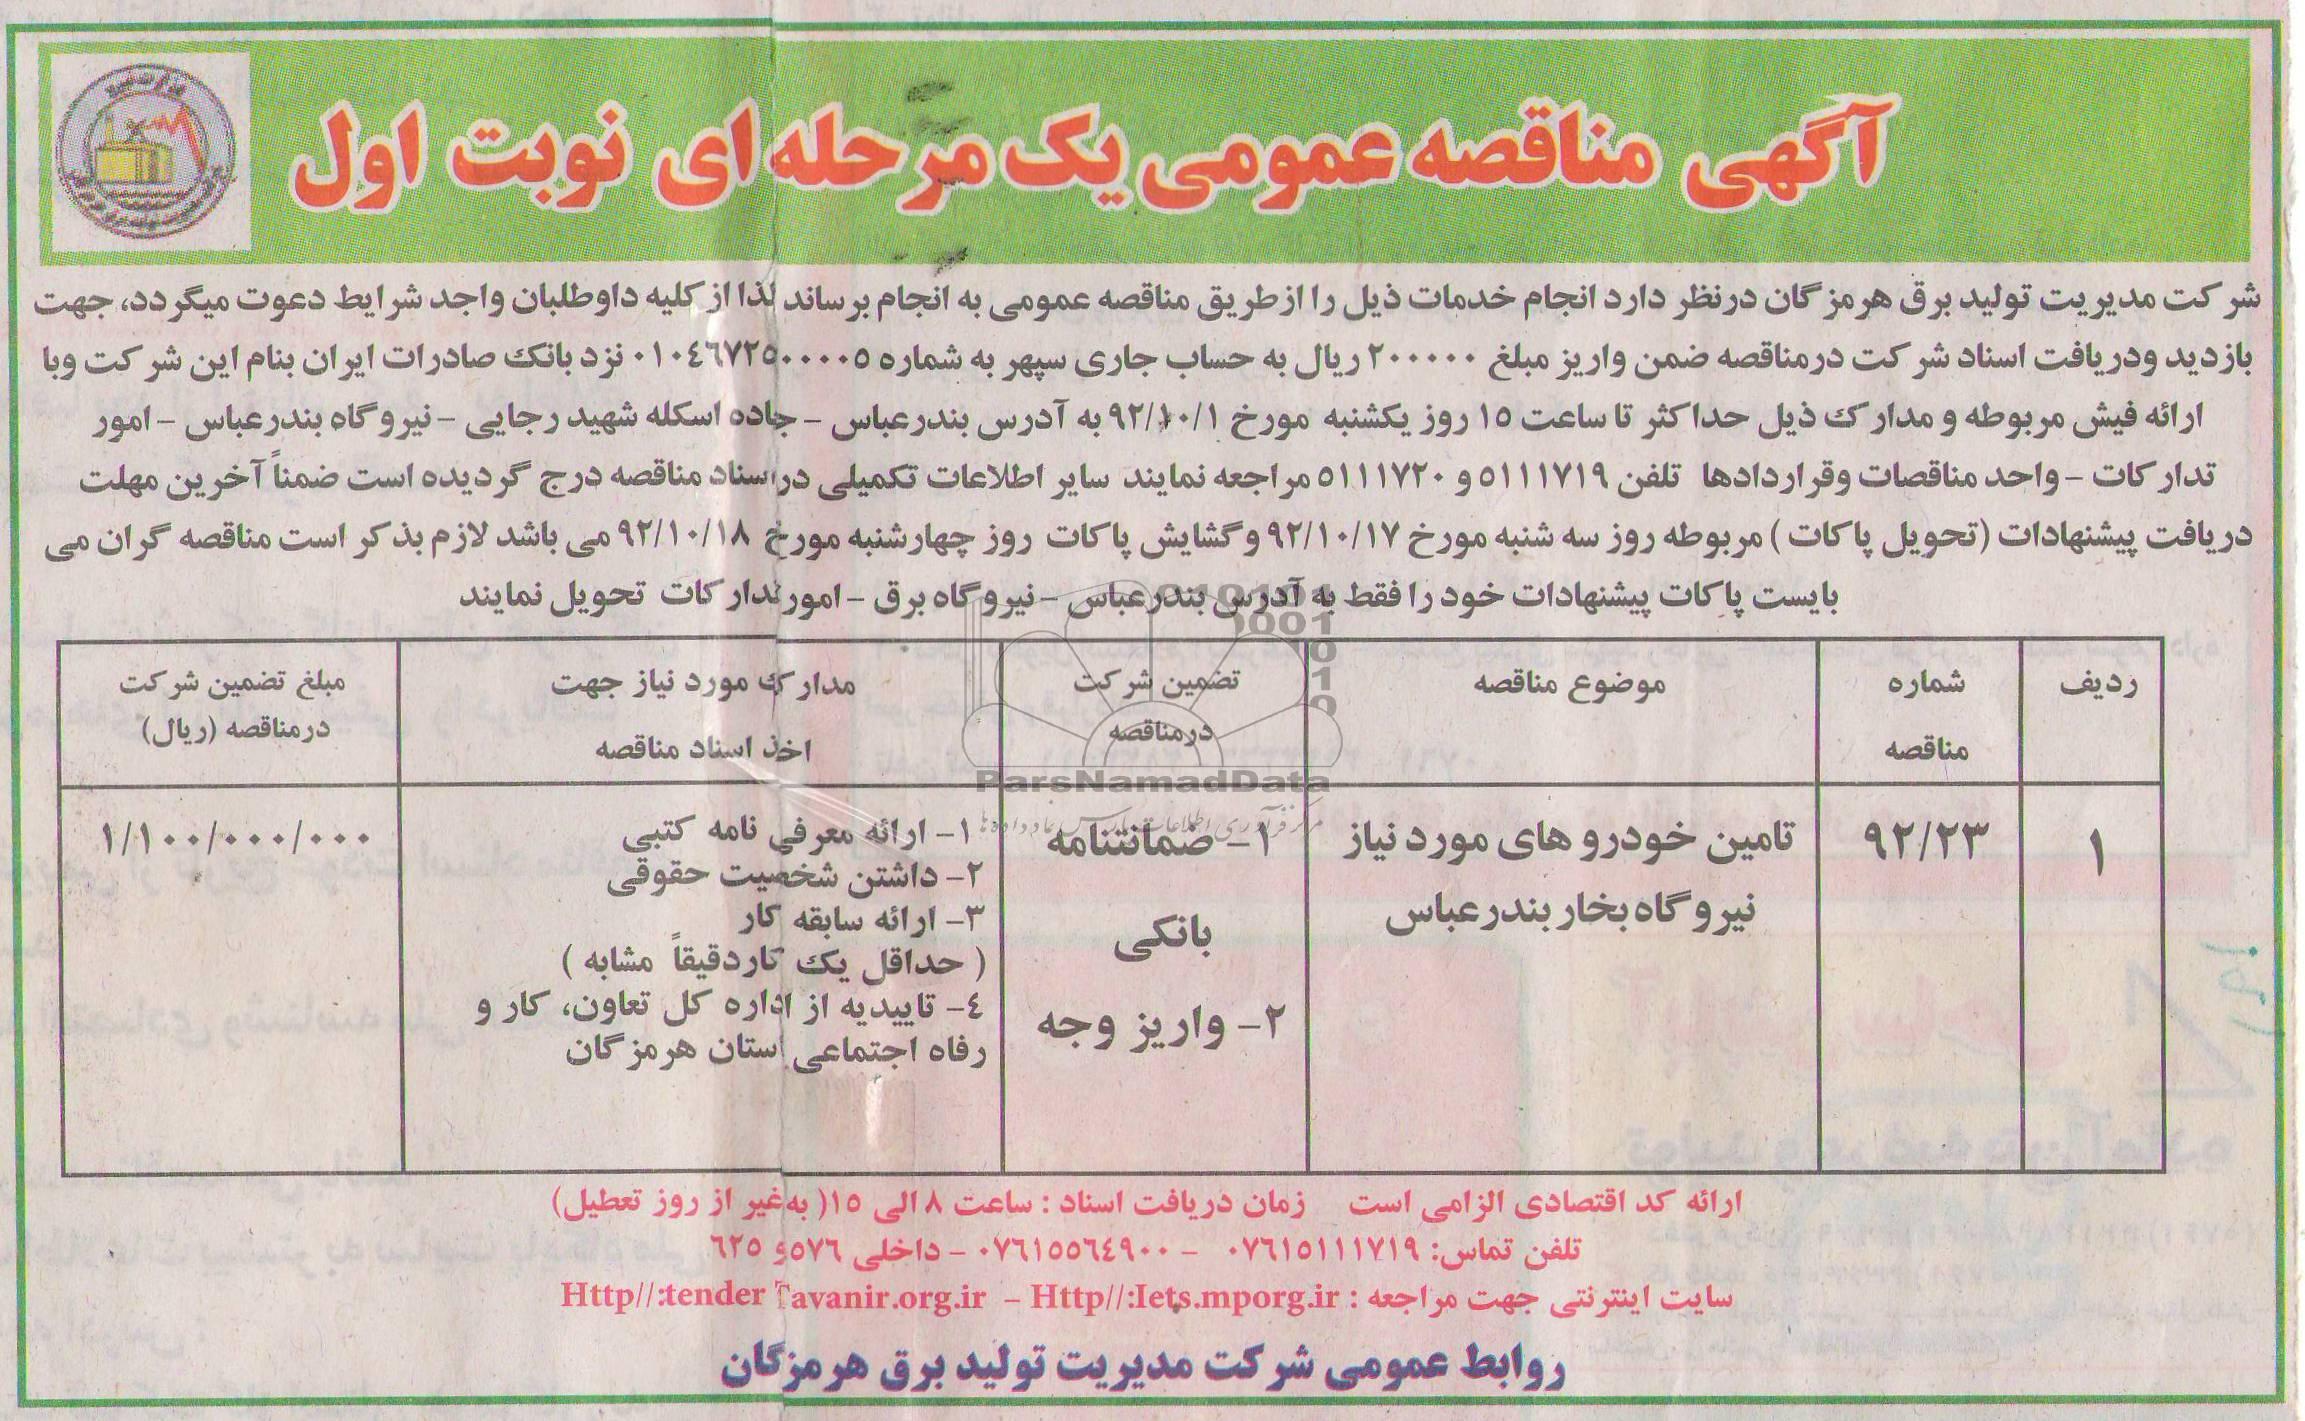 آگهی مناقصه عمومی یک مرحله ای نوبت اول
شرکت مدیریت تولید برق هرمزگان درنظر دارد انجام خدمات ذیل را ازطریق مناقصه عمومی به انجام برساند لذا از کلیه داوطلبان واجد شرایط دعوت میگردد، جهت
بازدید ودریافت اسناد شرکت درمناقصه ضمن واریز مبلغ ۲۰۰۰۰۰ ریال به حساب جاری سپهر به شماره ۰۱۰۴۶۷۲۵۰۰۰۰۰۵ نزد بانک صادرات ایران بنام این شرکت وبا
ارائه فیش مربوطه و مدارک ذیل حداکثر تا ساعت ۱۵ روز یکشنبه مورخ ۹۲/۱۰/۱ به آدرس بندرعباس – جاده اسکله شهید رجایی – نیروگاه بندرعباس – امور
تدارکات – واحد مناقصات وقراردادها تلفن ۵۱۱۱۷۱۹ و ۵۱۱۱۷۲۰ مراجعه نمایند سایر اطلاعات تکمیلی دراسناد مناقصه درج گردیده است ضمناً آخرین مهلت
دریافت پیشنهادات (تحویل پاکات) مربوطه روز سه شنبه مورخ ۹۲/۱۰/۱۷ وگشایش پاکات روز چهارشنبه مورخ ۹۲/۱۰/۱۸ می باشد لازم بذکر است مناقصه گران می
بایست پاکات پیشنهادات خود را فقط به آدرس بندرعباس – نیروگاه برق – امورتدارکات تحویل نمایند
ردیف
شماره
مناقصه
موضوع مناقصه
تضمین شرکت
درمناقصه
مدارک مورد نیاز جهت
اخذ اسناد مناقصه
مبلغ تضمین شرکت
درمناقصه (ریال)
۱
۹۲/۲۳
تامین خودرو های مورد نیاز
نیروگاه بخار بندرعباس
۱- ضمانتنامه
بانکی
۲- واریز وجه
۱- ارائه معرفی نامه کتبی
۲- داشتن شخصیت حقوقی
۳- ارائه سابقه کار
( حداقل یک کاردقیقاً مشابه )
۴- تاییدیه از اداره کل تعاون، کار و
رفاه اجتماعی استان هرمزگان
۱/۱۰۰/۰۰۰/۰۰۰
ParsNamadData
ارائه کد اقتصادی الزامی است زمان دریافت اسناد : ساعت ۸ الی ۱۵( به غیر از روز تعطیل)
تلفن تماس: ۰۷۶۱۵۱۱۱۷۱۹ – ۰۷۶۱۵۵۶۴۹۰۰ – داخلی ۵۷۶و ۶۲۵
سایت اینترنتی جهت مراجعه : Http//:Iets.mporg.ir – Http//:tender Tavanir.org.ir
روابط عمومی شرکت مدیریت تولید برق هرمزگان